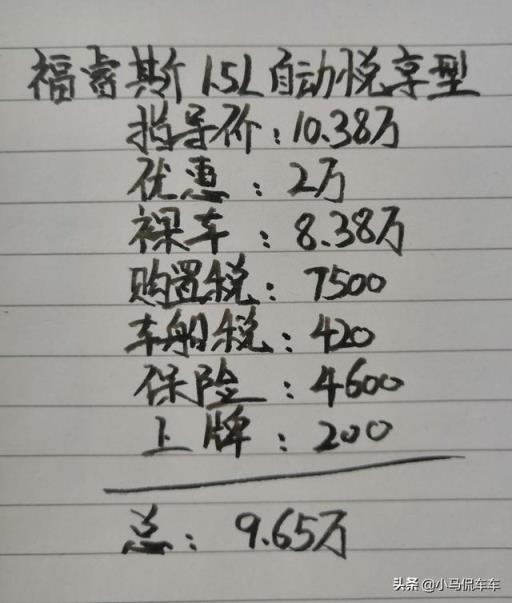 福睿斯 1.5L 自动悦享型
指导价：10.38万
优惠：2万
裸车：8.38万
购置税：7500
车船税：420
保险：4600
上牌：200
总：9.65万
头条 @小马侃车车